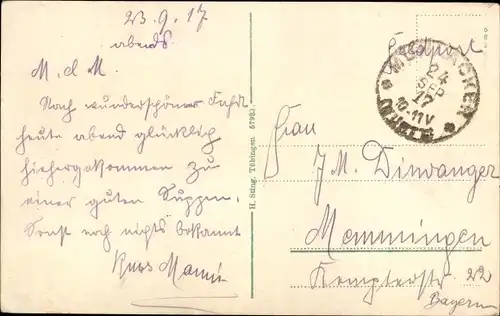 23.9.17
abends.
M. d. M.
Nach wunderschöner Fahrt
heute abend glücklich
hiehergekommen zu
einer guten Suppen.
Sonst noch nichts bekannt
Kuss
H. Sting, Tübingen 5793
Feldpost
24
SEP
17
10-11V
Frau
J. M. Dinvanger
Memmingen
Kempterstr 22
Bayern